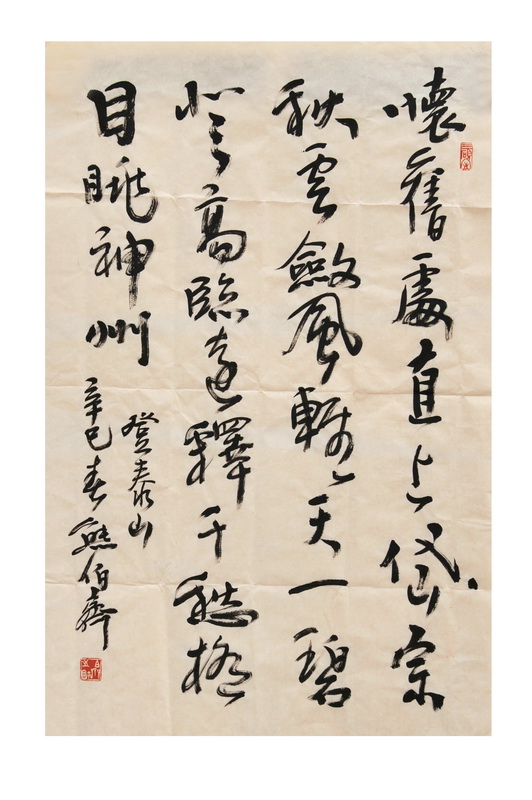 懷舊處直上岱宗
秋雲斂風輕天一碧
登高臨遠釋千愁極
目眺神州
登泰山
辛巳春熊伯齊